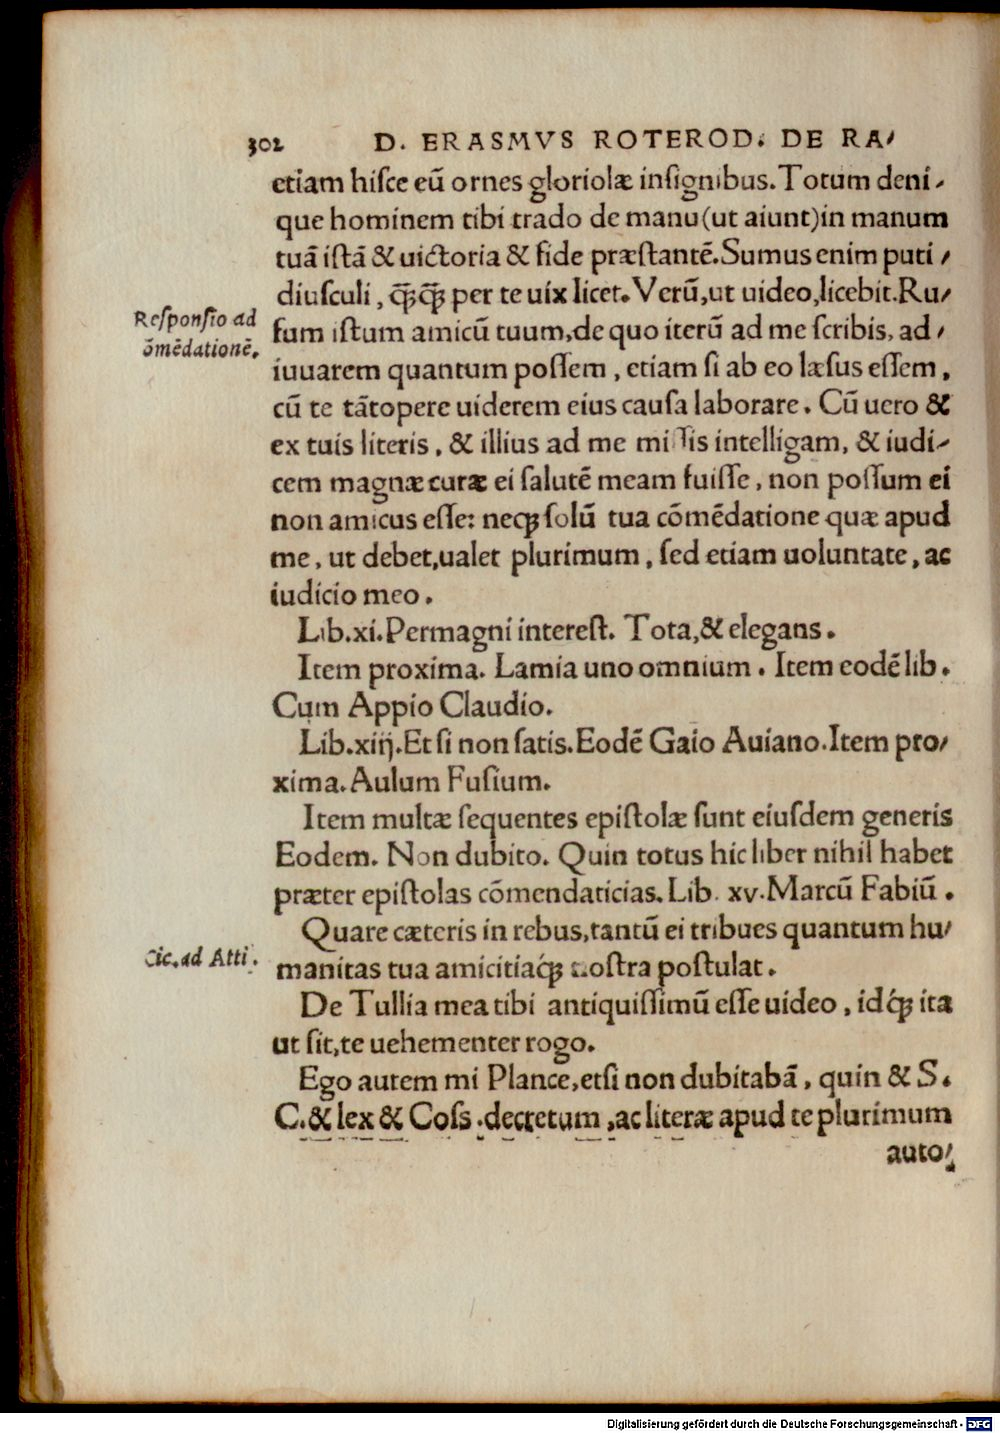 302 D. ERASMVS ROTEROD. DE RA/
etiam hisce eū ornes gloriolæ insignibus. Totum deni/
que hominem tibi trado de manu (ut aiunt) in manum
tuā istā & uictoria & fide præstantē. Sumus enim puti/
diusculi, ꝙ̄ꝙ̄ per te uix licet. Verū, ut uideo, licebit. Ru/
Responsio ad
fum istum amicū tuum, de quo iterū ad me scribis, ad/
ōmēdationē.
iuuarem quantum possem, etiam si ab eo læsus essem,
cū te tātopere uiderem eius causa laborare. Cū uero &
ex tuis literis, & illius ad me missis intelligam, & iudi/
cem magnæ curæ ei salutē meam fuisse, non possum ei
non amicus esse: neqꝫ solū tua cōmēdatione quæ apud
me, ut debet, ualet plurimum, sed etiam uoluntate, ac
iudicio meo.
Lib. xi. Permagni interest. Tota, & elegans.
Item proxima. Lamia uno omnium. Item eodē lib.
Cum Appio Claudio.
Lib. xiij. Et si non satis. Eodē Gaio Auiano. Item pro/
xima. Aulum Fusium.
Item multæ sequentes epistolæ sunt eiusdem generis
Eodem. Non dubito. Quin totus hic liber nihil habet
præter epistolas cōmendaticias. Lib. xv. Marcū Fabiū.
Quare cæteris in rebus, tantū ei tribues quantum hu/
Cic. ad Atti.
manitas tua amicitiaqꝫ nostra postulat.
De Tullia mea tibi antiquissimū esse uideo, idqꝫ ita
ut sit, te uehementer rogo.
Ego autem mi Plance, etsi non dubitabā, quin & S.
C. & lex & Coss. decretum, ac literæ apud te plurimum
auto/
Digitalisierung gefördert durch die Deutsche Forschungsgemeinschaft - DFG